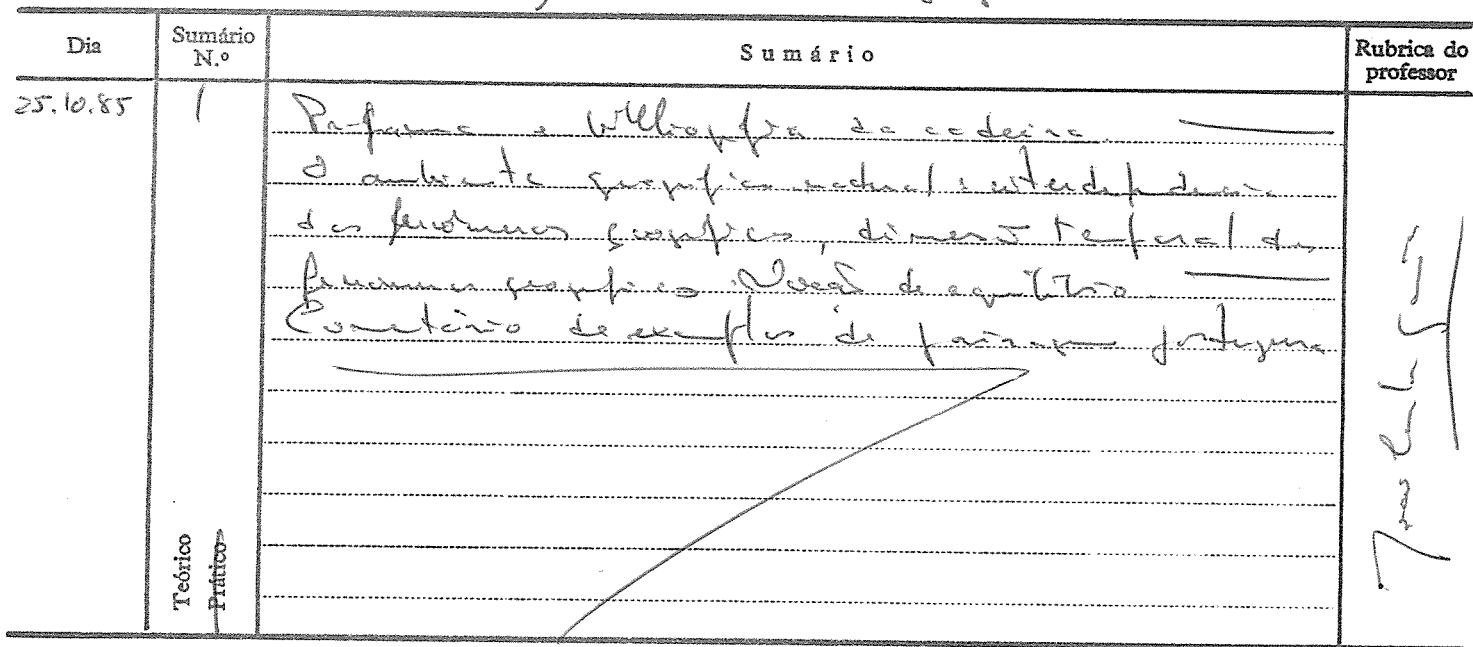 Dia Sumário N.º Sumário Rubrica do professor
25.10.85 1 Programa e bibliografia da cadeira.
O ambiente geográfico natural: interdependência
dos fenómenos geográficos, dimensão temporal dos
fenómenos geográficos. Noção de equilíbrio.
Comentário de exemplos de paisagem portuguesa
Teórico
Prático